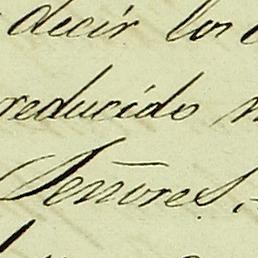 decir los
reducido
Señores.